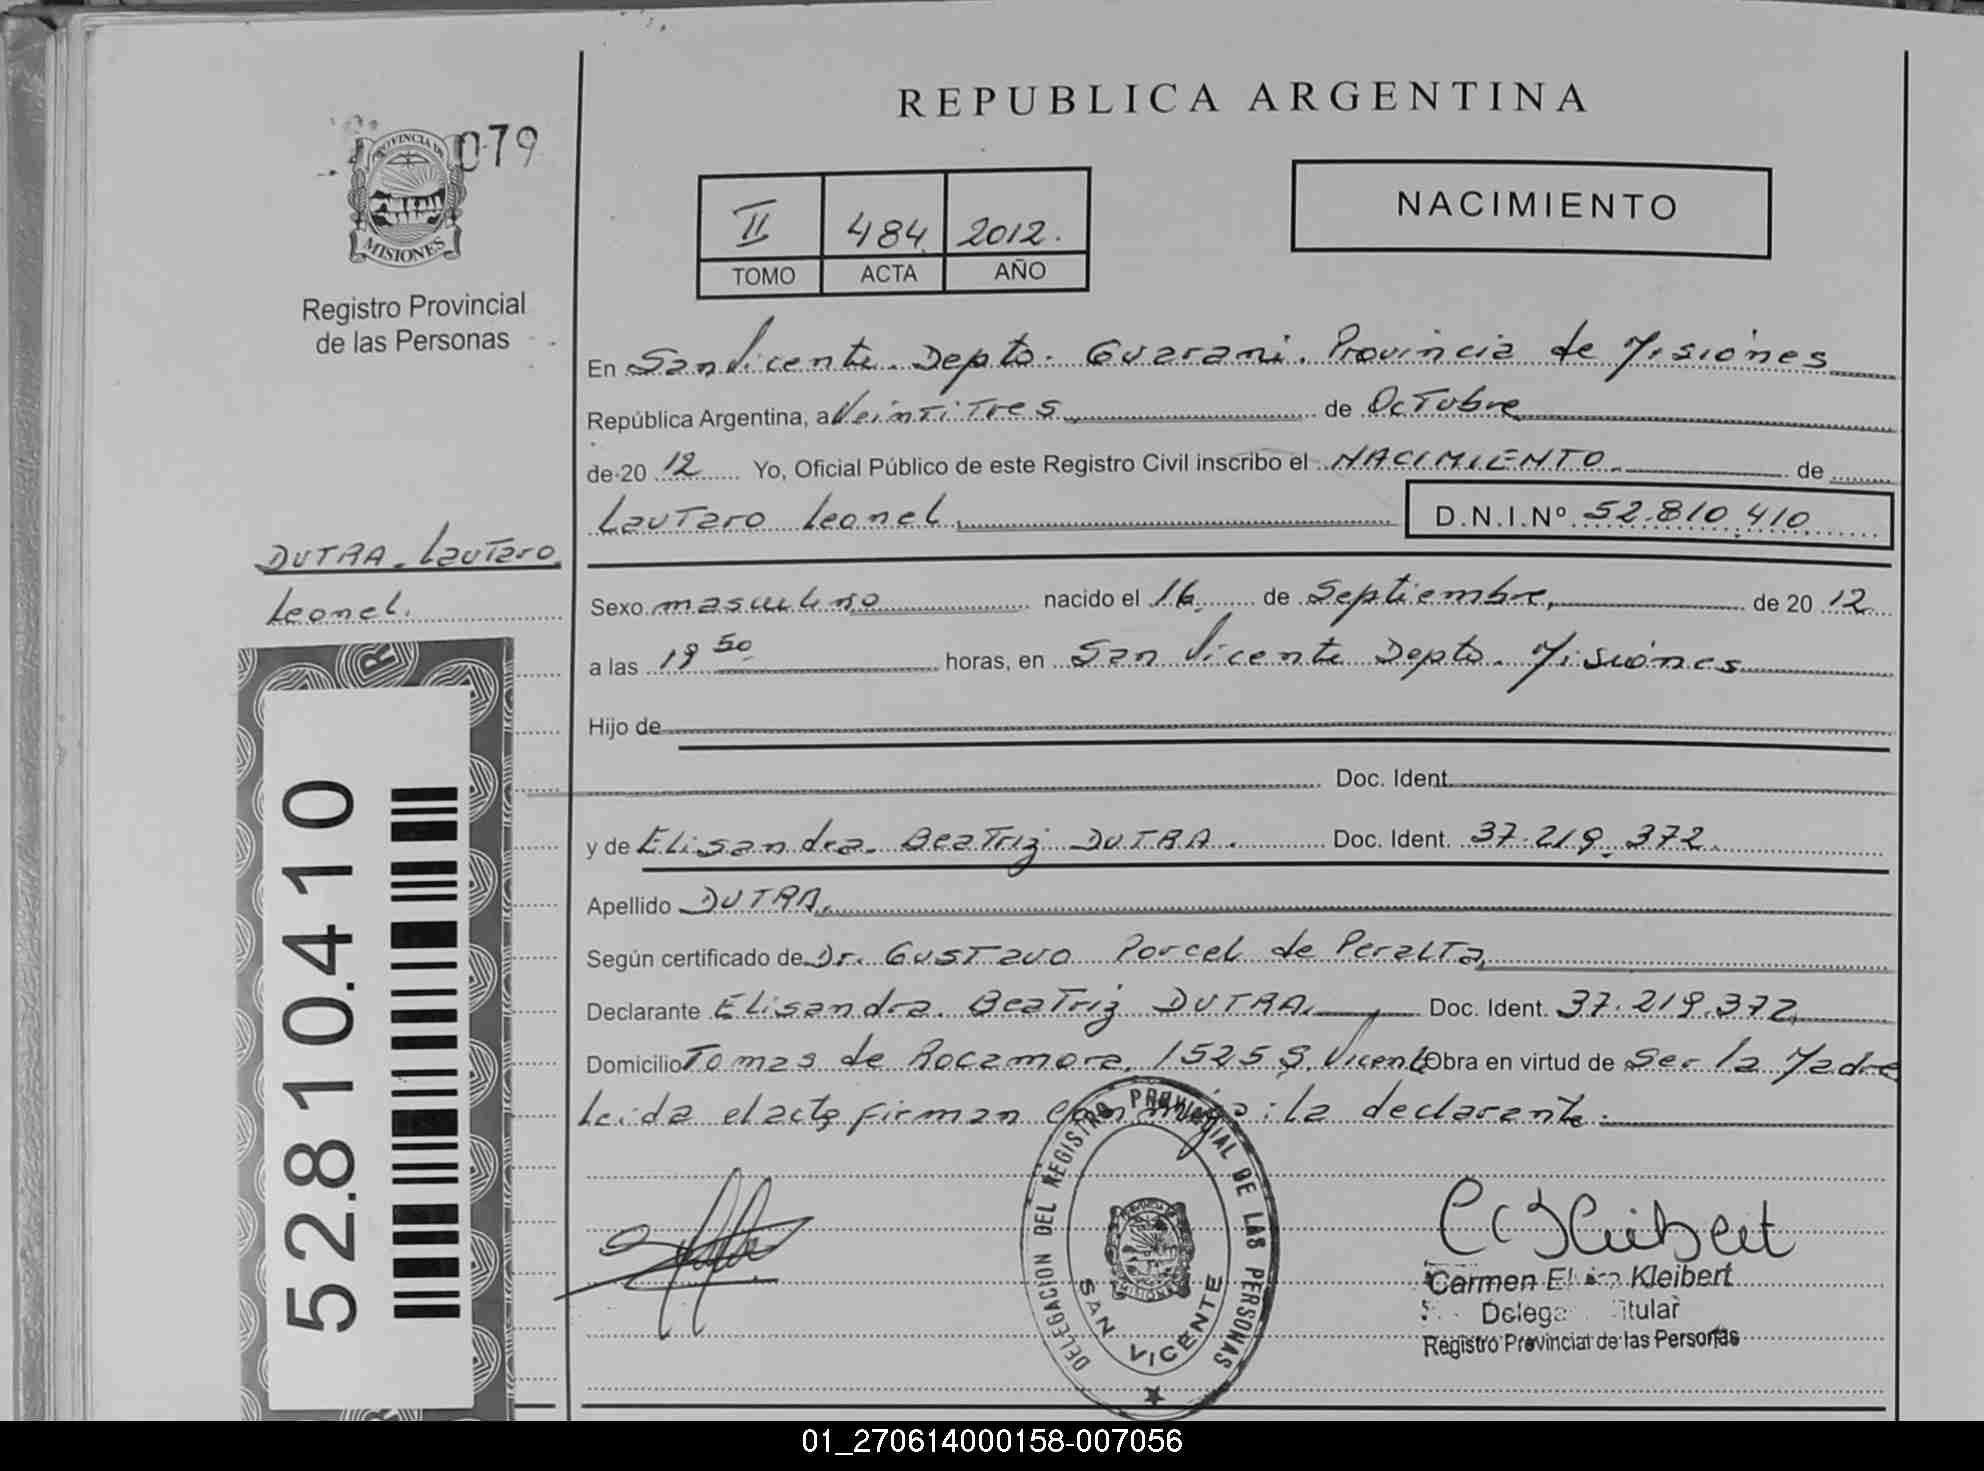 REPUBLICA ARGENTINA
079
PROVINCIA DE
MISIONES
Registro Provincial
de las Personas
II 484 2012.
TOMO ACTA AÑO
NACIMIENTO
En San Vicente. Depto. Guarani. Provincia de Misiones
República Argentina, a Veintitres de Octubre
de 20 12 Yo, Oficial Público de este Registro Civil inscribo el NACIMIENTO. de
Lautaro Leonel D.N.I.Nº 52.810.410
DUTRA. Lautaro
Leonel.
Sexo masculino nacido el 16 de Septiembre, de 20 12
a las 19 50 horas, en San Vicente Depto. Misiones
Hijo de
Doc. Ident.
y de Elisandra. Beatriz DUTRA. Doc. Ident. 37.219.372.
Apellido DUTRA.
Según certificado de Dr. Gustavo Porcel de Peralta,
Declarante Elisandra. Beatriz DUTRA. Doc. Ident. 37.219.372,
Domicilio Tomas de Rocamora. 1525 S. Vicente Obra en virtud de Ser la Madre
Leida el acta firman conmigo: la declarante.
52.810.410
DELEGACION DEL REGISTRO PROVINCIAL DE LAS PERSONAS
MISIONES
SAN VICENTE
Carmen Kleibert
Registro Provincial de las Personas
01_270614000158-007056